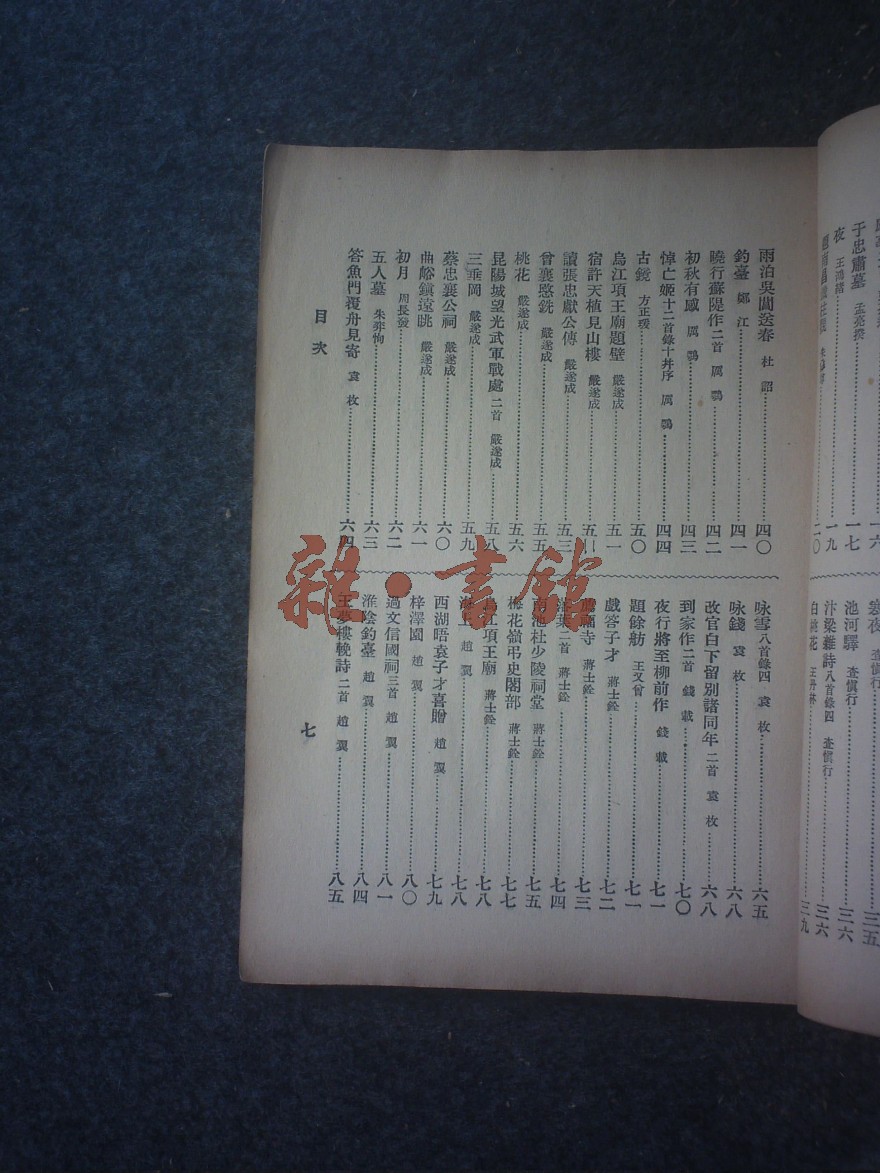 雨泊吳閶送春 杜詔 四〇
釣臺 鄭江 四一
曉行蘇隄作二首 厲鶚 四二
初秋有感 厲鶚 四三
悼亡姬十二首錄十幷序 厲鶚 四四
古鏡 方正瑗 五〇
烏江項王廟題壁 嚴遂成 五一
宿許天植見山樓 嚴遂成
讀張忠獻公傳 嚴遂成 五三
曾襄愍銑 嚴遂成 五五
桃花 嚴遂成 五六
昆陽城望光武軍戰處二首 嚴遂成 五八
三垂岡 嚴遂成 五九
蔡忠襄公祠 嚴遂成 六〇
曲峪鎮遠眺 嚴遂成 六一
初月 周長發 六二
五人墓 朱弈恂 六三
答魚門覆舟見寄 袁枚 六四
咏雪八首錄四 袁枚 六五
咏錢 袁枚 六八
改官白下留別諸同年二首 袁枚 六八
到家作二首 錢載 七〇
夜行將至柳前作 錢載 七一
題餘舫 王又曾 七一
戲答子才 蔣士銓 七二
寺 蔣士銓 七三
葉二首 蔣士銓 七四
南池杜少陵祠堂 蔣士銓 七五
梅花嶺弔史閣部 蔣士銓 七七
烏江項王廟 蔣士銓 七八
上 趙翼 七八
西湖晤袁子才喜贈 趙翼 七九
梓澤園 趙翼 八〇
過文信國祠三首 趙翼 八一
淮陰釣臺 趙翼 八四
王夢樓輓詩二首 趙翼 八五
目次
七
于忠肅墓 孟亮揆 一七
夜 王鴻緒 一九
二〇
池河驛 查慎行 三六
汴梁雜詩八首錄四 查慎行 三六
桃花 王丹林 三九
雜·書館